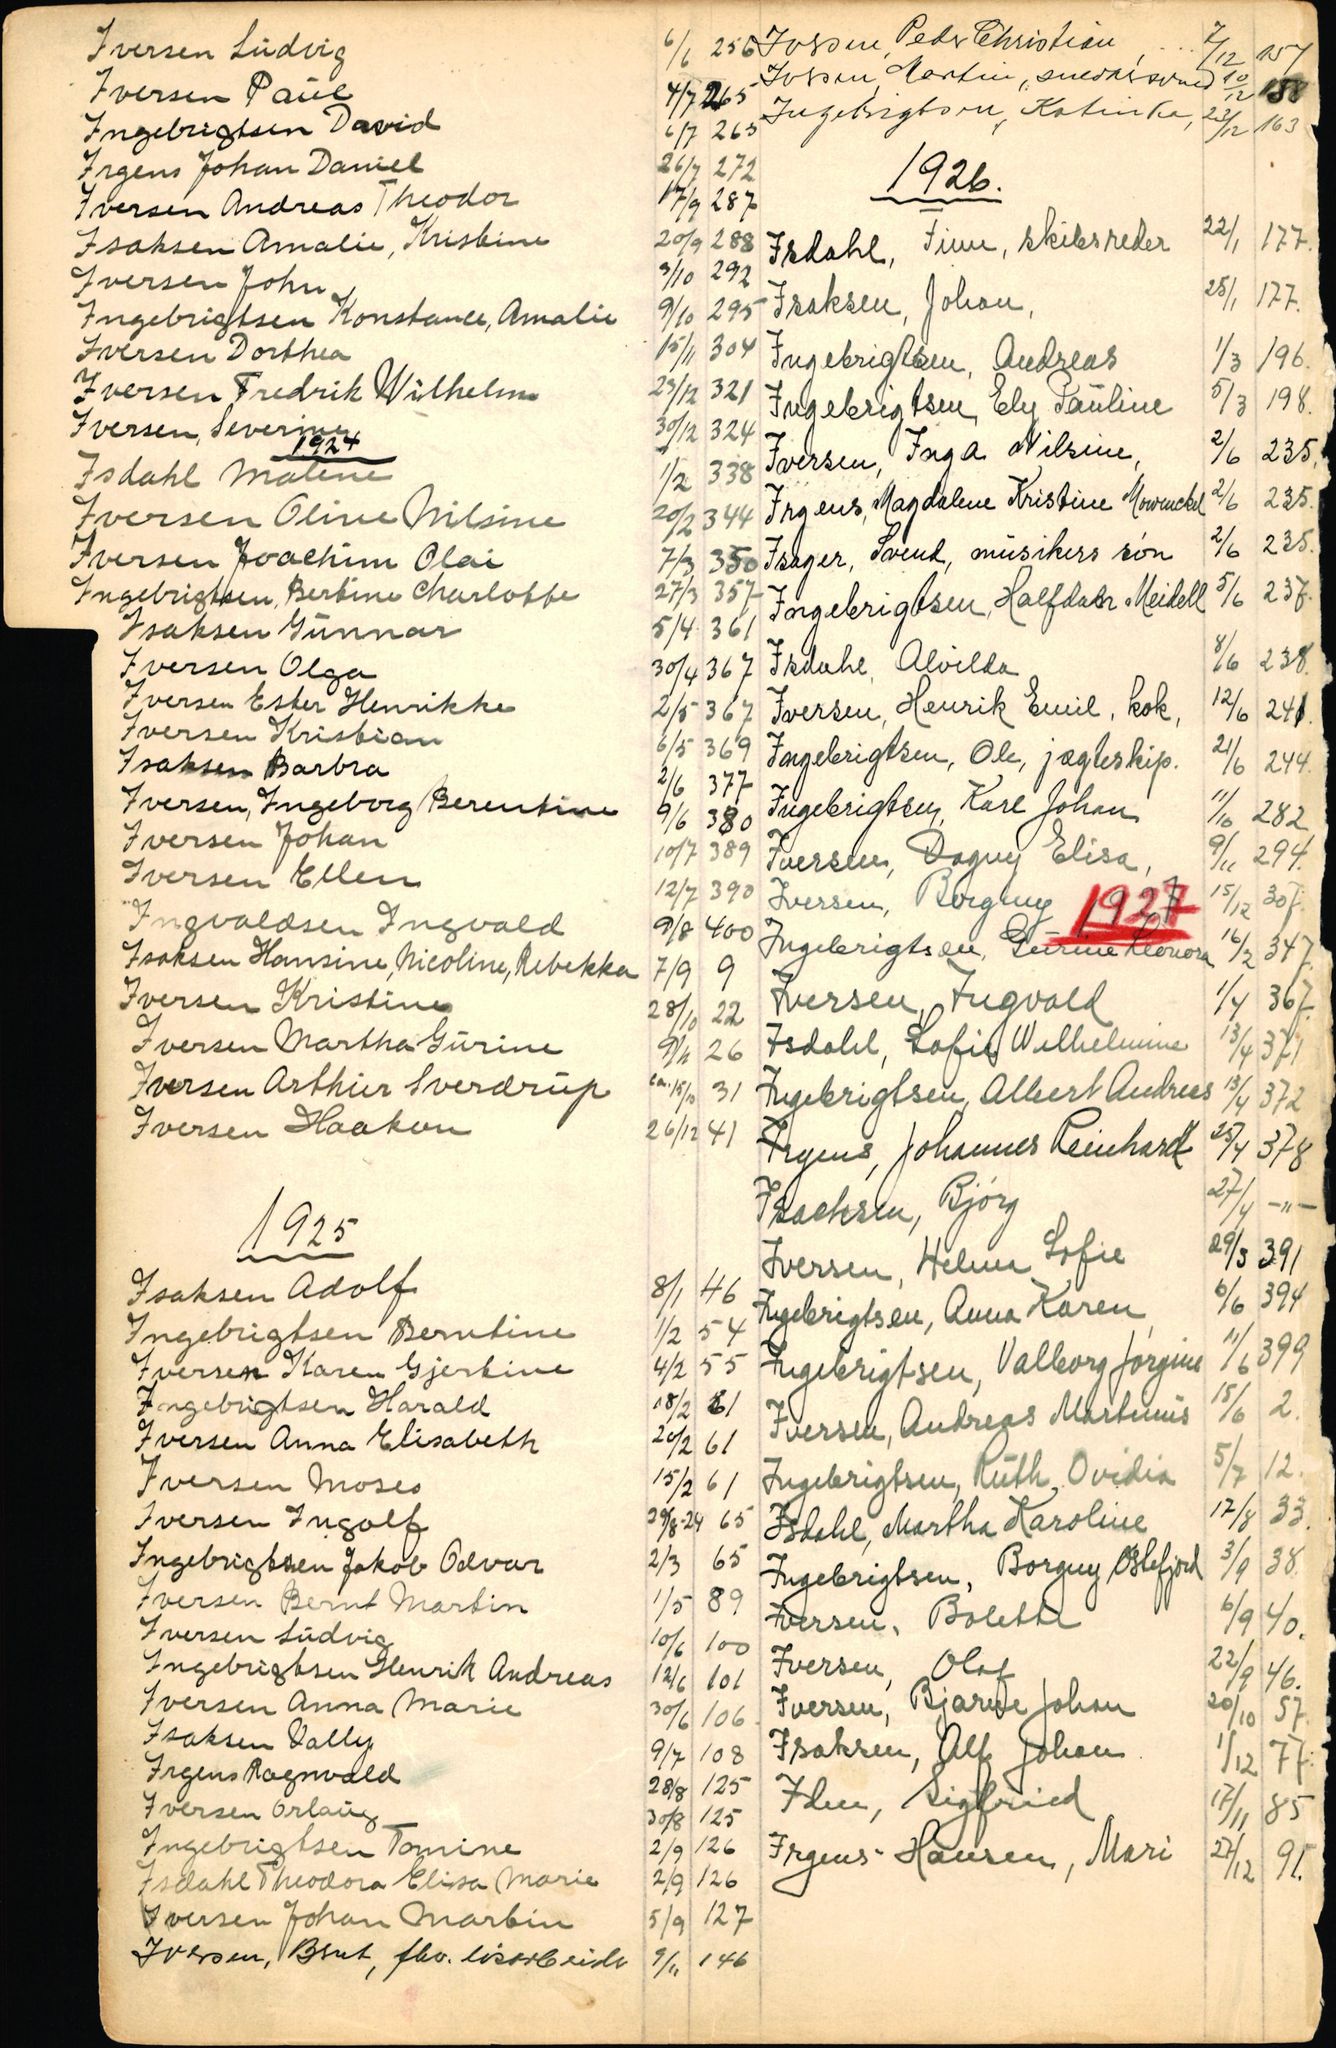 Iversen Ludvig 6/1 256
Iversen Paul 4/7 265
Ingebrigtsen David 6/7 265
Irgens Johan Daniel 26/7 272
Iversen Andreas Theodor 17/9 287
Isaksen Amalie, Kristine 20/9 288
Iversen John 3/10 292
Ingebrigtsen Konstance, Amalie 9/10 295
Iversen Dorthea 15/11 304
Iversen Fredrik Wilhelm 23/12 321
Iversen, Severine 30/12 324
1924
Isdahl Malene 1/2 338
Iversen Oline Nilsine 20/2 344
Iversen Joachim Olai 7/3 350
Ingebrigtsen, Bertine Charlotte 27/3 357
Isaksen Gunnar 5/4 361
Iversen Olga 30/4 367
Iversen Ester Henrikke 2/5 367
Iversen Kristian 6/5 369
Isaksen Barbra 2/6 377
Iversen, Ingeborg Berentine 9/6 380
Iversen Johan 10/7 389
Iversen Ellen 12/7 390
Ingvaldsen Ingvald 9/8 400
Isaksen Hansine, Nicoline, Rebekka 7/9 9
Iversen Kristine 28/10 22
Iversen Martha Gurine 9/11 26
Iversen Arthur Sverdrup ca. 15/10 31
Iversen Haakon 26/12 41
1925
Isaksen Adolf 8/1 46
Ingebrigtsen Berntine 1/2 54
Iversen Karen Gjertine 4/2 55
Ingebrigtsen Harald 18/2 61
Iversen Anna Elisabeth 20/2 61
Iversen Moses 15/2 61
Iversen Ingolf 29/8-24 65
Ingebrigtsen Jakob Odvar 2/3 65
Iversen Bernt Martin 1/5 89
Iversen Ludvig 10/6 100
Ingebrigtsen Henrik Andreas 12/6 101
Iversen Anna Marie 30/6 106
Isaksen Vally 9/7 108
Irgens Ragnvald 28/8 125
Iversen Orlaug 30/8 125
Ingebrigtsen Tomine 2/9 126
Isdahl Theodora Elisa Marie 2/9 126
Iversen Johan Martin 5/9 127
Iversen, Bernt, fhv. 9/11 146
Iversen, Peder Christian 7/12 157
Iversen, Martin, 10/12 158
Ingebrigtsen, Katinka, 23/12 163
1926.
Isdahl, Finn, skibsreder 22/1 177.
Isaksen, Johan, 25/1 177.
Ingebrigtsen, Andreas 1/3 196.
Ingebrigtsen, Ely Pauline 5/3 198.
Iversen, Inga Nilsine, 2/6 235.
Irgens, Magdalene Kristine Mowinckel 2/6 235.
Isager, Svend, musikers søn 2/6 235.
Ingebrigtsen, Halfdan Meidell 5/6 237.
Isdahl, Alvilda 8/6 238.
Iversen, Henrik Emil, kok, 12/6 241.
Ingebrigtsen, Ole, jægteskip. 21/6 244.
Ingebrigtsen, Karl Johan 11/10 282
Iversen, Dagny Elisa, 9/11 294.
Iversen, Borgny 15/12 307.
1927
Ingebrigtsen, Gurine Leonora 16/2 347.
Iversen, Ingvald 1/4 367.
Isdahl, Sofie Wilhelmine 13/4 371
Ingebrigtsen, Albert Andreas 13/4 372
Irgens, Johannes Reinhardt 25/4 378
Isachsen, Bjørg 27/4 -"-
Iversen, Helma Sofie 29/5 391
Ingebrigtsen, Anna Karen, 6/6 394
Ingebrigtsen, Valborg Jørgine 11/6 399
Iversen, Andreas Martinus 15/6 2.
Ingebrigtsen, Ruth Ovidia 5/7 12.
Isdahl, Martha Karoline 17/8 33.
Ingebrigtsen, Borgny Ostefjord 3/9 38.
Iversen, Bolette 6/9 40.
Iversen, Olaf 22/9 46.
Iversen, Bjarne Johan 20/10 57.
Isaksen, Alf Johan 1/12 77.
Iden, Sigfried 17/11 85
Irgens-Hansen, Mari 27/12 91.